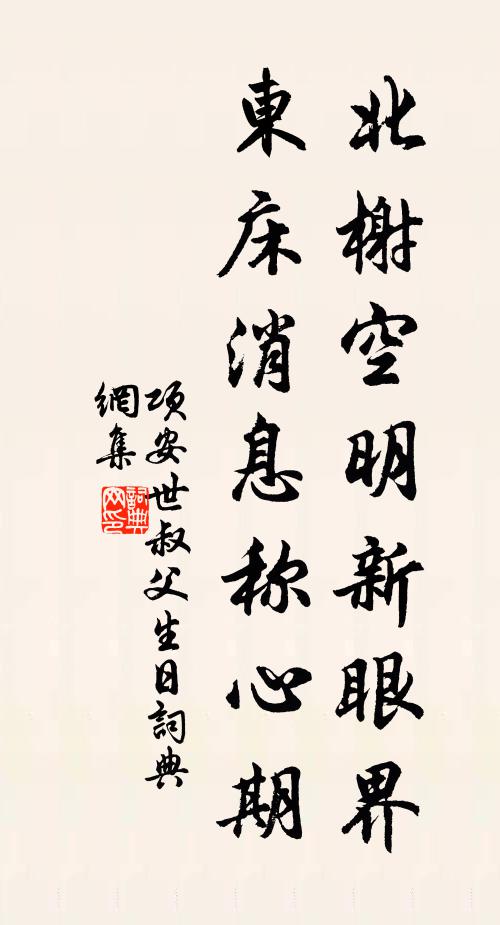 北榭空明新眼界
東床消息称心期
项安世叔父生日詞典
網集
詞典
网印